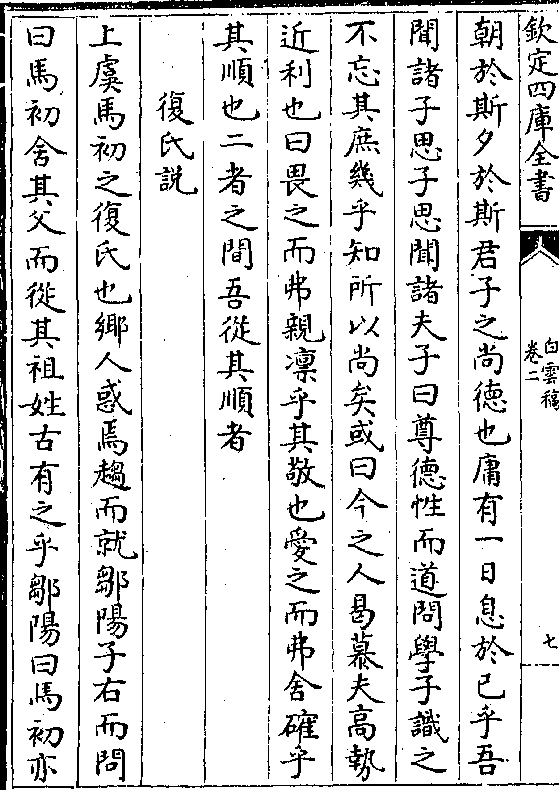 欽定四庫全書
白雲稿
卷二
七
朝於斯夕於斯君子之尚德也庸有一日息於已乎吾
聞諸子思子思聞諸夫子曰尊德性而道問學子識之
不忘其庶幾乎知所以尚矣或曰今之人曷慕夫高執
近利也曰畏之而弗親凛乎其敬也愛之而弗舍確乎
其順也二者之間吾從其順者
復氏説
上虞馬初之復氏也鄉人惑焉趨而就鄒陽子右而問
曰馬初舍其父而從其祖姓古有之乎鄒陽曰馬初亦